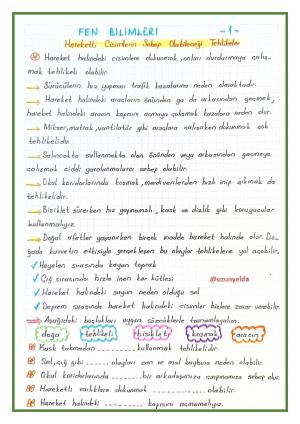 FEN BİLİMLERİ -1-
Hareketli Cisimlerin Sebep Olabileceği Tehlikeler
Hareket halindeki cisimlere dokunmak, onları durdurmaya çalış-
mak tehlikeli olabilir.
Sürücülerin hız yapması trafik kazalarına neden olmaktadır.
Hareket halindeki araçların önünden ya da arkasından geçmek,
hareket halindeki aracın kapısını açmaya çalışmak kazalara neden olur.
Mikser, matkap, vantilatör gibi araçlara çalışırken dokunmak çok
tehlikelidir.
Salıncakta sallanmakta olan birinin önünden veya arkasından geçmeye
çalışmak ciddi yaralanmalara sebep olabilir.
Okul koridorlarında koşmak, merdivenlerden hızlı inip çıkmak da
tehlikelidir.
Bisiklet sürerken hız yapmamalı, kask ve dizlik gibi koruyucular
kullanmalıyız.
Doğal afetler yaşanırken birçok madde hareket halinde olur. Do-
ğada kuvvetin etkisiyle gerçekleşen bu olaylar tehlikelere yol açabilir.
Heyelan sırasında kayan toprak
Çığ sırasında hızla inen kar kütlesi @uzunyelda
Hareket halindeki suyun neden olduğu sel
Deprem sırasında hareket halindeki cisimler bizlere zarar verebilir.
Aşağıdaki boşlukları uygun sözcüklerle tamamlayalım.
doğa tehlikeli bisiklet koşmak aracın
Kask takmadan .......... kullanmak tehlikelidir.
Sel, çığ gibi ......... olayları can ve mal kaybına neden olabilir.
Okul koridorlarında ......... bir arkadaşımıza çarpmamıza sebep olur.
Hareketli varlıklara dokunmak ............ olabilir.
Hareket halindeki ........... kapısını açmamalıyız.